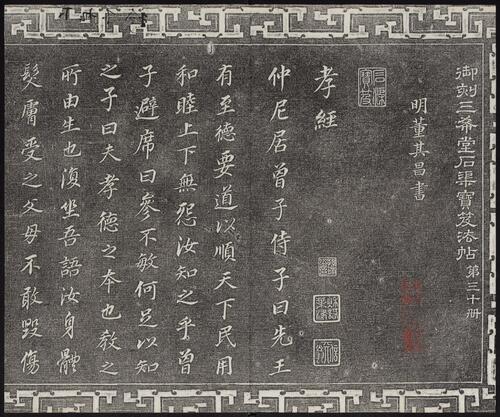 御刻三希堂石渠寶笈法帖 第三十册
明董其昌書
石渠寶笈
孝經
仲尼居曾子侍子曰先王
有至德要道以順天下民用
和睦上下無怨汝知之乎曾
子避席曰參不敏何足以知
之子曰夫孝德之本也教之
所由生也復坐吾語汝身體
髮膚受之父母不敢毀傷